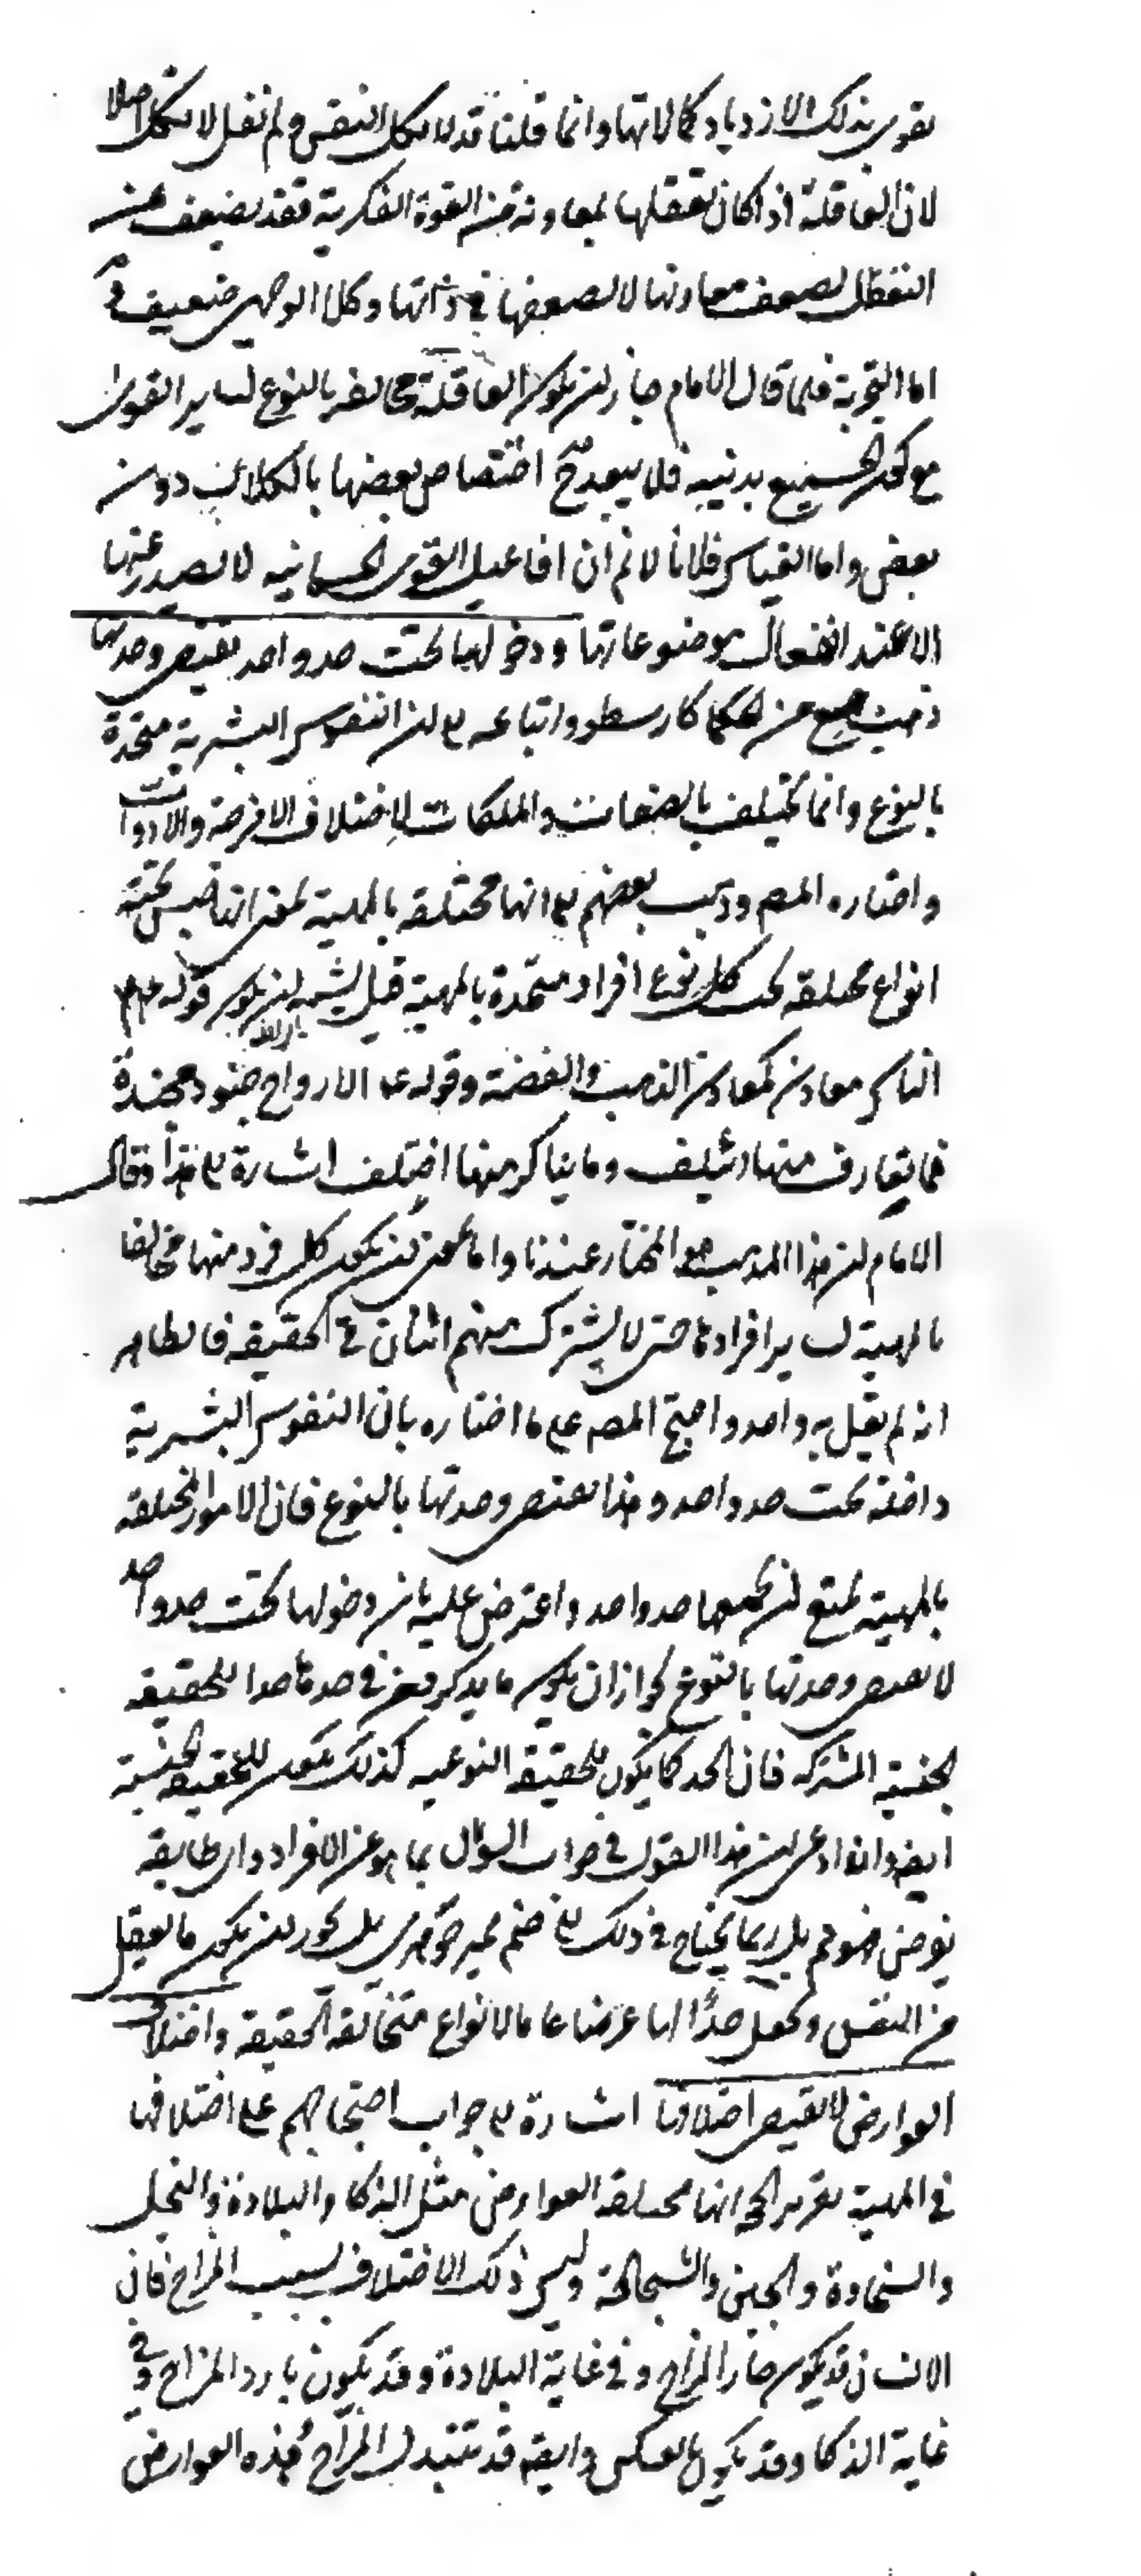 تقوى بذلك الازدياد كمالاتها وانما قلنا قد لا تكل النفس ولم نقل لا تكل اصلا
لان العاقلة اذا كان تعقلها بمعاونة من القوة الفكرية فقد يضعف عن
التعقل لضعف معاونها لا لضعفها في ذاتها وكلا الوجهين ضعيف
اما التجربة فلما قال الامام جاز ان يكون العاقلة مخالفة بالنوع لساير القوى
مع كون الجميع بدنية فلا يبعد ح اختصاص بعضها بالكلال دون
بعض واما القياس فلانا لا نم ان افاعيل القوى الجسمانيه لا تصدر عنها
الا عند انفعال موضوعاتها ودخولها تحت حد واحد يقتضي وحدتها
ذهب جمع من الحكما كارسطو واتباعه الى ان النفوس البشرية متحدة
بالنوع وانما تختلف بالصفات والملكات لاختلاف الامزجة والادوات
واختاره المصم وذهب بعضهم الى انها مختلفه بالمهية بمعنى انها جنس تحته
انواع مختلفه تحت كل نوع افراد متحدة بالمهية قيل يشبه ان يكون قوله عم
الناس معادن كمعادن الذهب والفضة وقوله عم الارواح جنود مجندة
فما تعارف منها ائتلف وما تناكر منها اختلف اشارة الى هذا وقال
الامام ان هذا المذهب هو المختار عندنا واما بمعنى ان يكون كل فرد منها مخالفا
بالمهية لساير افراده حتى لا يشترك منهم اثنان في الحقيقه فالظاهر
انه لم يقل به واحد واحتج المصم على ما اختاره بان النفوس البشرية
داخلة تحت حد واحد وهذا يقتضي وحدتها بالنوع فان الامور المختلفه
بالمهية يمتنع ان يجمعها حد واحد واعترض عليه بان دخولها تحت حد واحد
لا يقتضي وحدتها بالنوع لجواز ان يكون ما يذكر في حدها حدا للحقيقه
الجنسية المشتركه فان الحد كما يكون للحقيقة النوعيه كذلك يكون للحقيقه الجنسية
ايضا وان ادعى ان هذا القول في جواب السؤال بما هو عن الافراد واى طايفه
يفرض فهو مم بل ربما يحتاج في ذلك الى ضم مميز جوهرى بل يجوز ان يكون ما يعقل
من النفس ويجعل حدًا لها عرضا عاما لانواع متخالفة الحقيقه واختلاف
العوارض لا يقتضي اختلافها اشارة الى جواب احتجاجهم على اختلافها
في المهية تقرير الحجه انها مختلفة العوارض مثل الذكا والبلادة والبخل
والسخاوة والجبن والشجاعة وليس ذلك الاختلاف بسبب المزاج فان
الانسان قد يكون حار المزاج وفي غاية البلادة وقد يكون بارد المزاج وفي
غاية الذكا وقد يكون بالعكس وايضا قد تتبدل المزاج وهذه العوارض